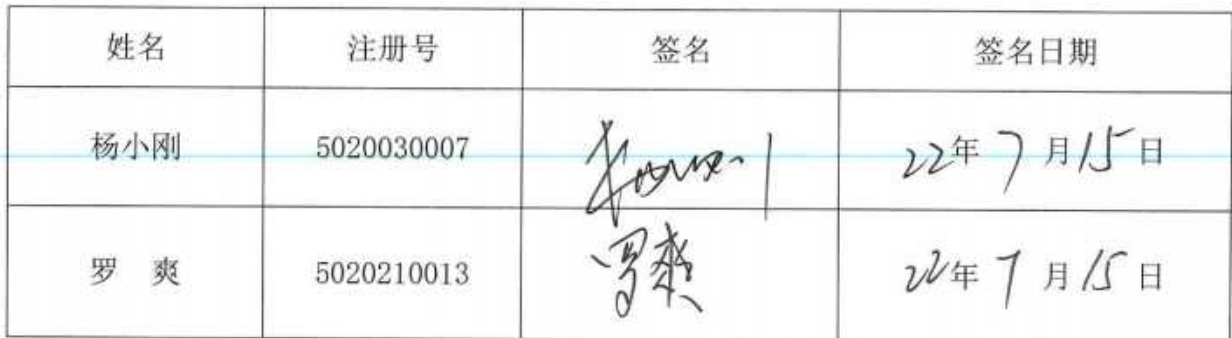 姓名 注册号 签名 签名日期
杨小刚 5020030007 22年7月15日
罗 爽 5020210013 罗爽 22年7月15日